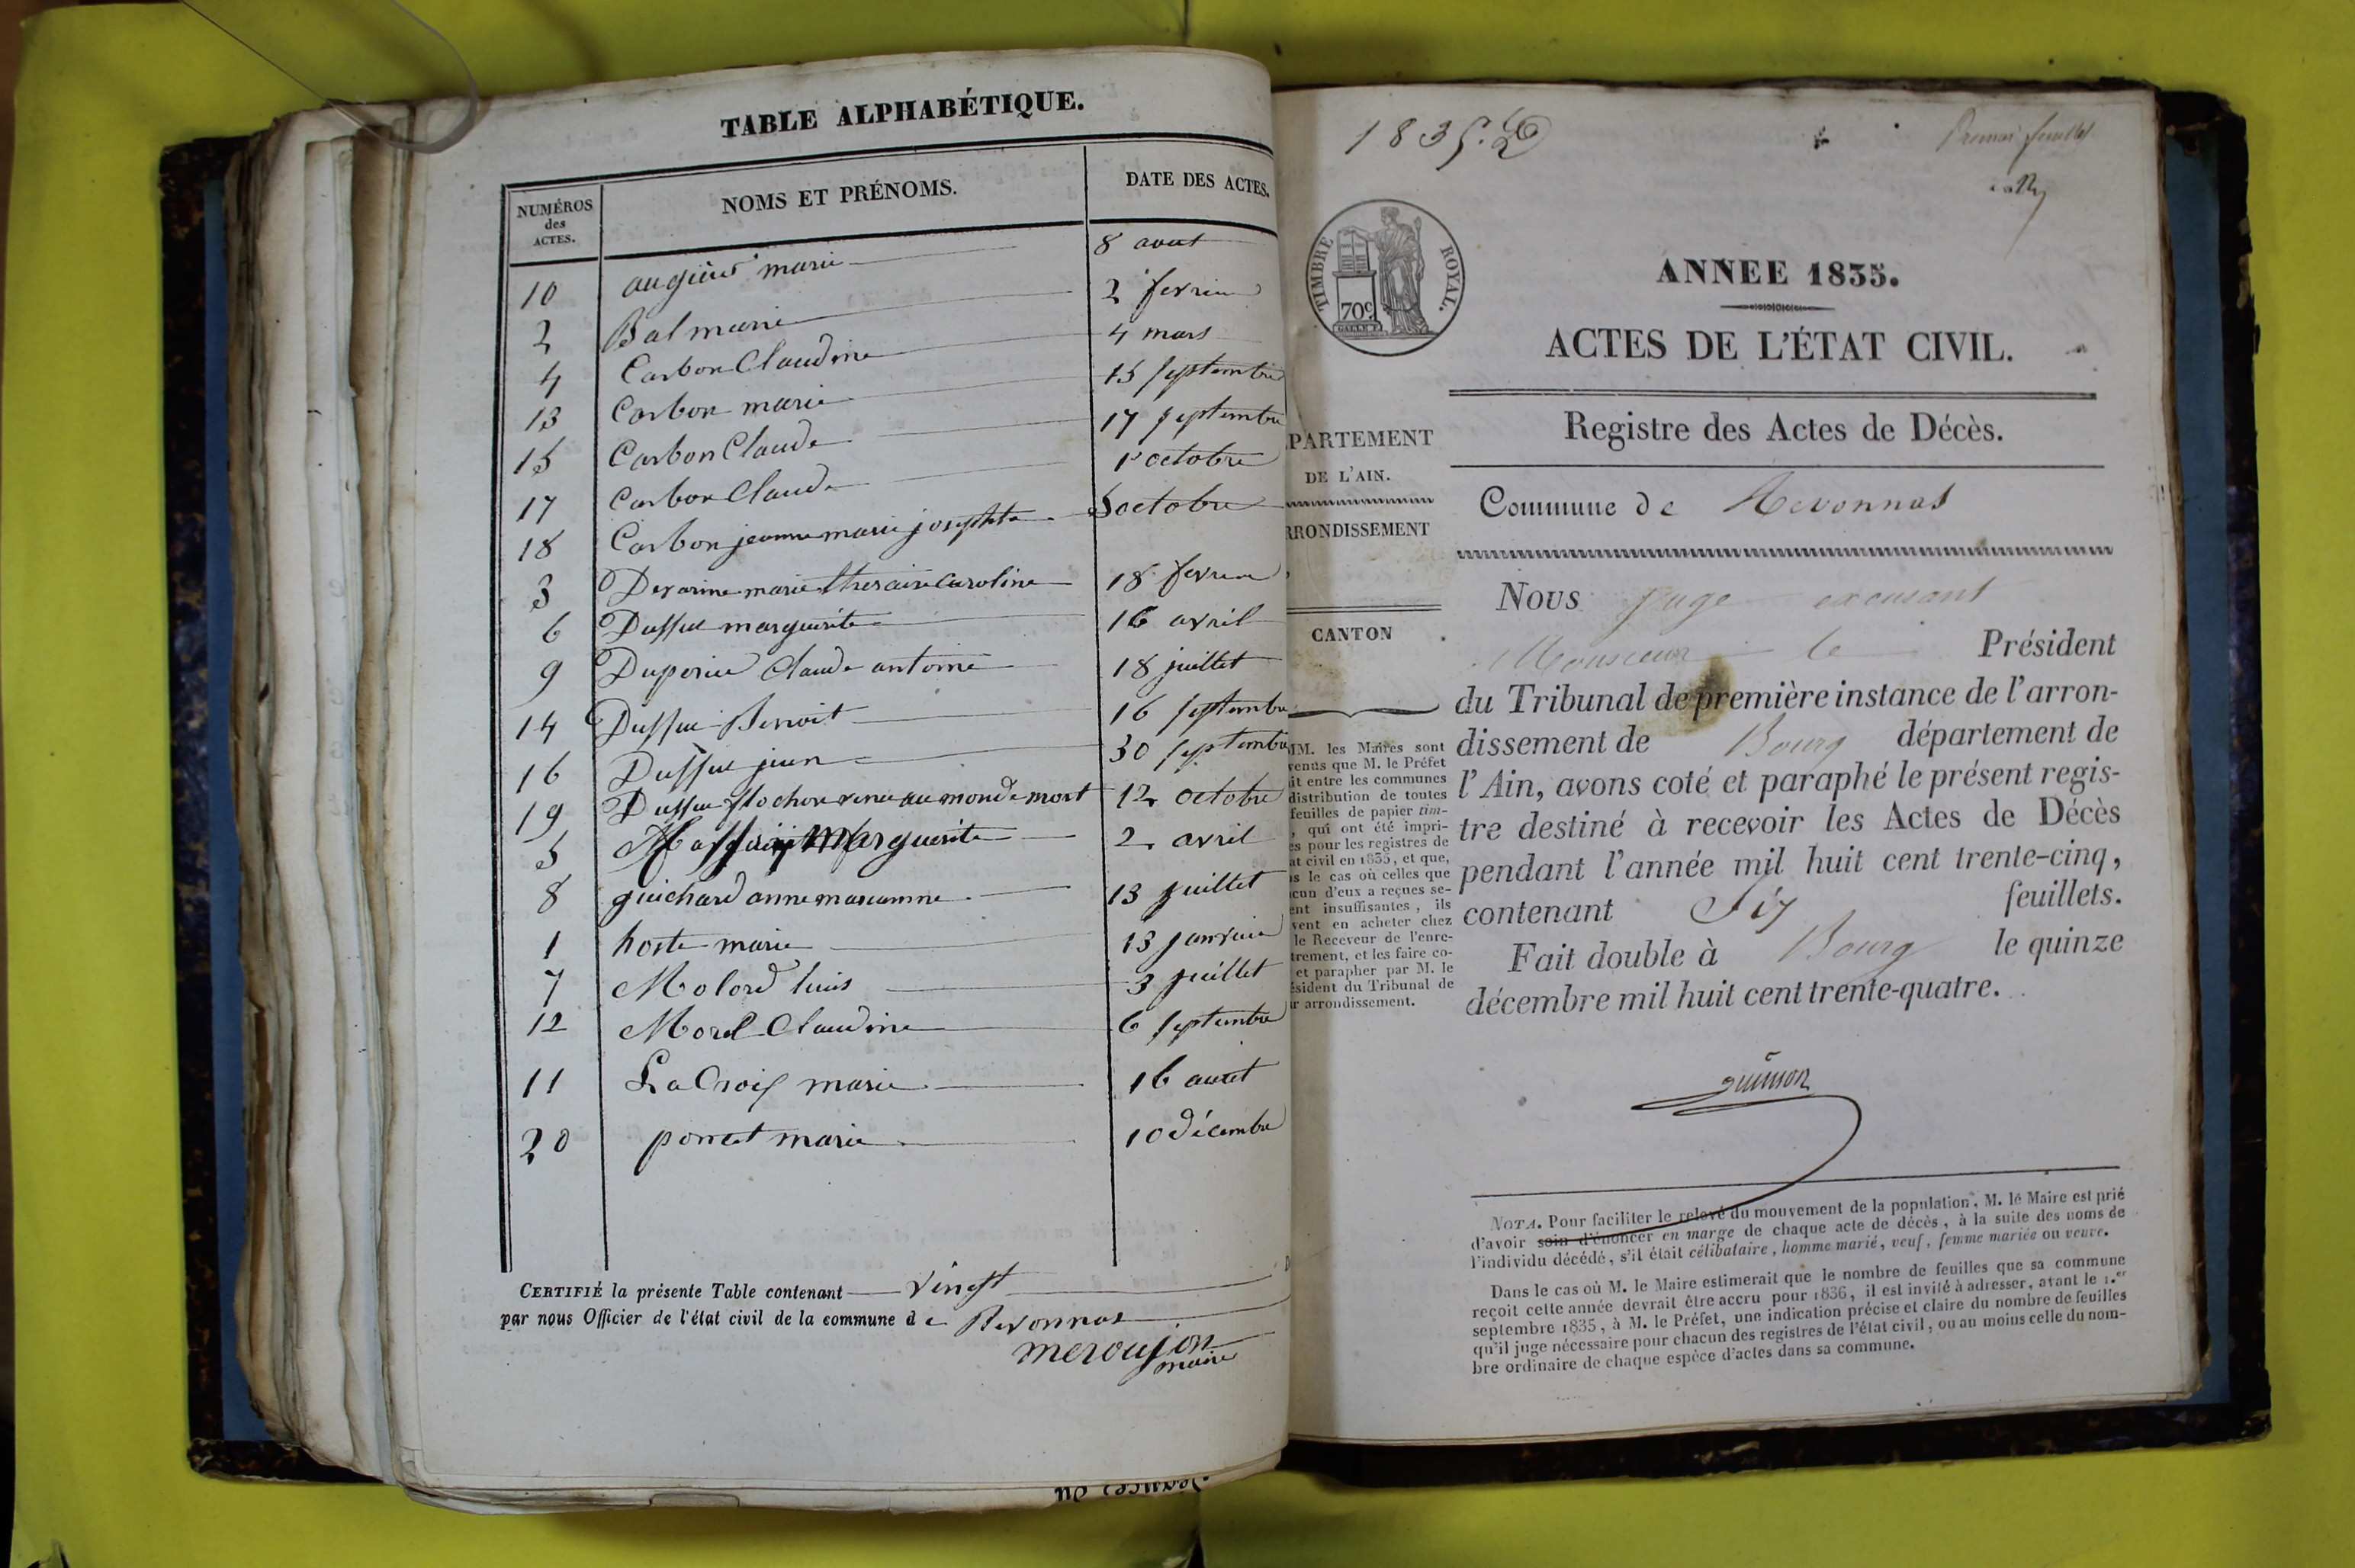 TABLE ALPHABÉTIQUE.
NUMÉROS des ACTES. NOMS ET PRÉNOMS. DATE DES ACTES.
10 marie 8 aout
2 Bal marie 2 fevrier
4 Carbon Claudine 4 mars
13 Carbon marie 15 septembre
15 Carbon Claude 17 septembre
17 Carbon Claude 1er octobre
18 Carbon jeanne marie josephte 5 octobre
3 marie caroline 18 fevrier
6 Duffue marguerite 16 avril
9 Claude antoine 18 juillet
14 Duffue Benoit 16 septembre
16 Duffue jean 30 septembre
19 Duffue venue au monde mort 12 octobre
5 Marguerite 2 avril
8 guichard anne 13 juillet
1 hoste marie 13 janvier
7 Molard 3 juillet
12 Morel Claudine 6 septembre
11 La Croix marie 16 aout
20 poncet marie 10 décembre
CERTIFIÉ la présente Table contenant vingt
par nous Officier de l'état civil de la commune de Revonnas
maire
1835. D
Premier feuillet
TIMBRE ROYAL.
70c
ANNEE 1835.
ACTES DE L'ÉTAT CIVIL.
Registre des Actes de Décès.
PARTEMENT
DE L'AIN.
RRONDISSEMENT
CANTON
MM. les Maires sont
venus que M. le Préfet
it entre les communes
distribution de toutes
feuilles de papier tim-
, qui ont été impri-
es pour les registres de
at civil en 1835, et que,
s le cas où celles que
cun d'eux a reçues se-
ent insuffisantes, ils
vent en acheter chez
le Receveur de l'enre-
trement, et les faire co-
et parapher par M. le
ésident du Tribunal de
r arrondissement.
Commune de Revonnas
Nous juge
Monsieur le Président
du Tribunal de première instance de l'arron-
dissement de Bourg département de
l'Ain, avons coté et paraphé le présent regis-
tre destiné à recevoir les Actes de Décès
pendant l'année mil huit cent trente-cinq,
contenant Six feuillets.
Fait double à Bourg le quinze
décembre mil huit cent trente-quatre.
NOTA. Pour faciliter le relevé du mouvement de la population, M. le Maire est prié
d'avoir soin d'énoncer en marge de chaque acte de décès, à la suite des noms de
l'individu décédé, s'il était célibataire, homme marié, veuf, femme mariée ou veuve.
Dans le cas où M. le Maire estimerait que le nombre de feuilles que sa commune
reçoit cette année devrait être accru pour 1836, il est invité à adresser, avant le 1.er
septembre 1835, à M. le Préfet, une indication précise et claire du nombre de feuilles
qu'il juge nécessaire pour chacun des registres de l'état civil, ou au moins celle du nom-
bre ordinaire de chaque espèce d'actes dans sa commune.